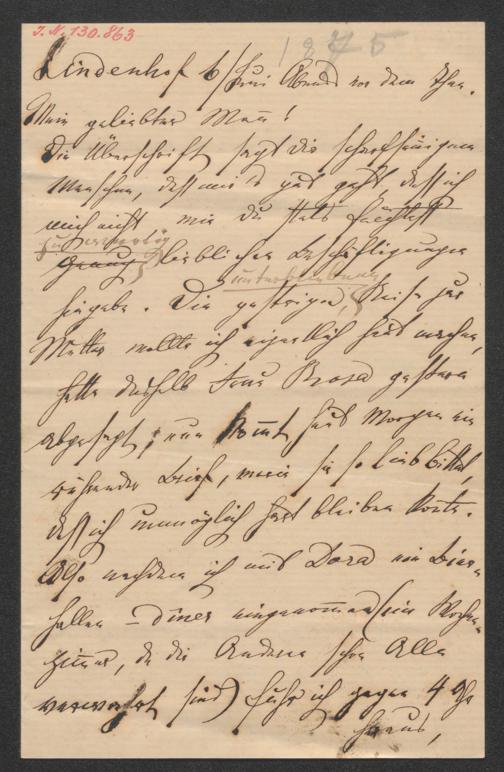 I. N. 130.863
1875
Lindenhof 6/Juni Abends vor dem Thee.
Mein geliebter Mann!
Die Überschrift sagt die scharfsinnigen
Menschen, daß mir's gut geht, daß ich
mich nicht wie du stets
genug lieblichen Beschäftigungen
unterbliebene
hingebe. Die gestrigen, Reise zur
Mutter wollte ich eigentlich heut machen,
hatte deshalb Frau Rosa gestern
abgesagt; nun kommt heut Morgen ein
rührender Brief, worin sie so lieb bittet,
daß ich unmöglich fort bleiben konte.
Also nachdem ich mit Dora ein Bier-
hallen-diner eingenommen (im
zimmer, da die Anderen schon Alle
verwahrt sind) fuhr ich gegen 4 Uhr
hinaus,